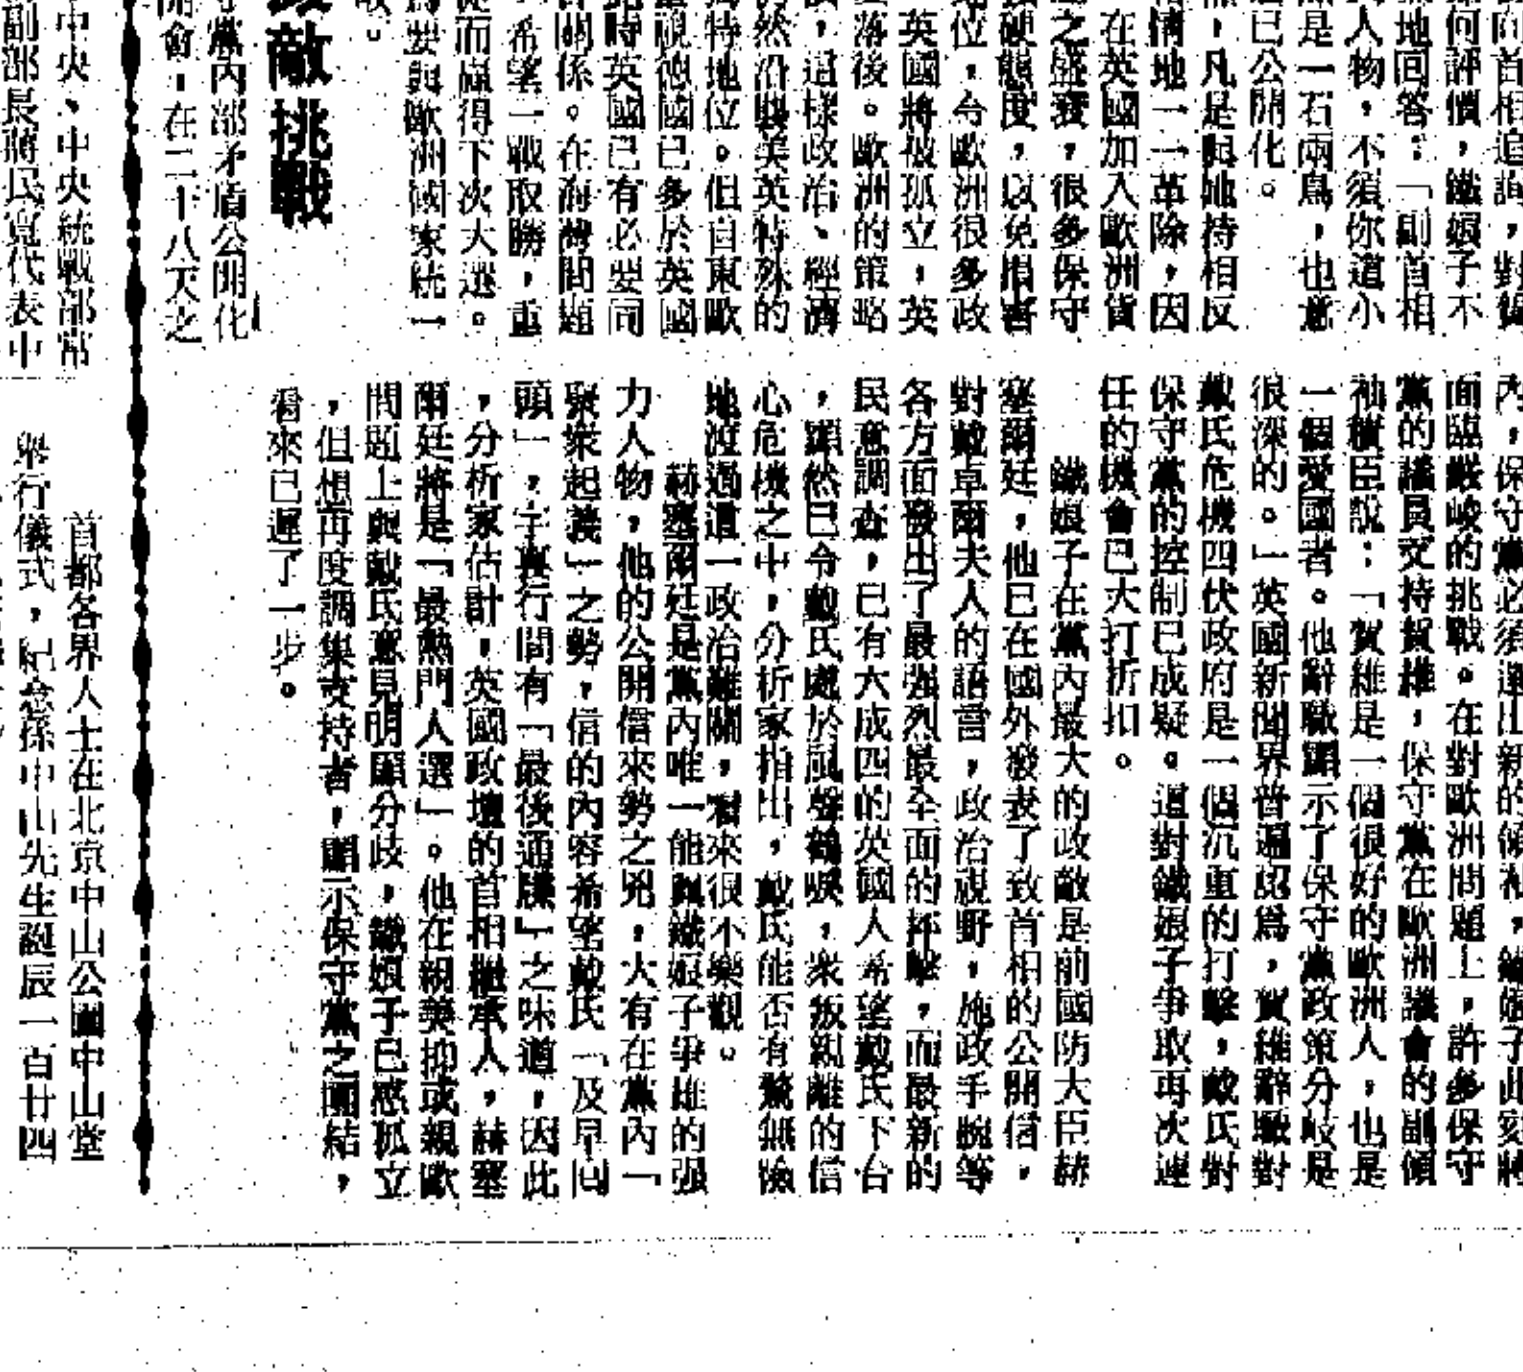 向首相追詢，對賀
何評價，鐵娘子不
地回答：「副首相
人物，不須你道小
是一石兩鳥，也意
已公開化。
，凡是與她持相反
情地一一革除，因
在英國加入歐洲貨
之盛衰，很多保守
硬態度，以免損害
位，令歐洲很多政
英國將被孤立，英
落後。歐洲的策略
，這樣政治、經濟
然沿襲美英特殊的
特地位。但自東歐
視德國已多於英國
時英國已有必要同
關係。在海灣問題
希望一戰取勝，重
從而贏得下次大選。
要與歐洲國家統一
敵挑戰
黨內部矛盾公開化
開會，在二十八天之
內，保守黨必須選出新的領袖，鐵娘子此刻將
面臨嚴峻的挑戰。在對歐洲問題上，許多保守
黨的議員支持賀維，保守黨在歐洲議會的副領
袖積臣說：「賀維是一個很好的歐洲人，也是
一個愛國者。他辭職顯示了保守黨政策分歧是
很深的。」英國新聞界普遍認爲，賀維辭職對
戴氏危機四伏政府是一個沉重的打擊，戴氏對
保守黨的控制已成疑。這對鐵娘子爭取再次連
任的機會已大打折扣。
鐵娘子在黨內最大的政敵是前國防大臣赫
塞爾廷，他已在國外發表了致首相的公開信，
對戴卓爾夫人的語言，政治視野，施政手腕等
各方面發出了最強烈最全面的抨擊，而最新的
民意調查，已有六成四的英國人希望戴氏下台
，顯然已令戴氏處於風聲鶴唳，衆叛親離的信
心危機之中，分析家指出，戴氏能否有驚無險
地渡過這一政治難關，看來很不樂觀。
赫塞爾廷是黨內唯一能與鐵娘子爭雄的强
力人物，他的公開信來勢之兇，大有在黨內「
聚衆起義」之勢，信的內容希望戴氏「及早回
頭」，字裏行間有「最後通牒」之味道，因此
，分析家估計，英國政壇的首相繼承人，赫塞
爾廷將是「最熱門人選」。他在親美抑或親歐
問題上與戴氏意見明顯分歧，鐵娘子已感孤立
，但想再度調集支持者，顯示保守黨之團結，
看來已遲了一步。
中央、中央統戰部常
副部長蔣民寬代表中
首都各界人士在北京中山公園中山堂
舉行儀式，紀念孫中山先生誕辰一百廿四